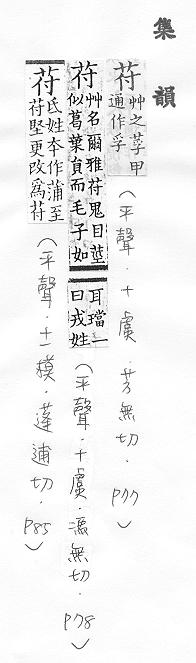 集韻
苻艸之莩甲通作孚（平聲．十虞．芳無切．P77）
苻艸名爾雅苻鬼目莖似葛葉員而毛子如耳璫一曰戎姓（平聲．十虞．馮無切．P78）
苻氐姓本作蒲至苻堅更改為苻（平聲．十一模．蓬逋切．P85）